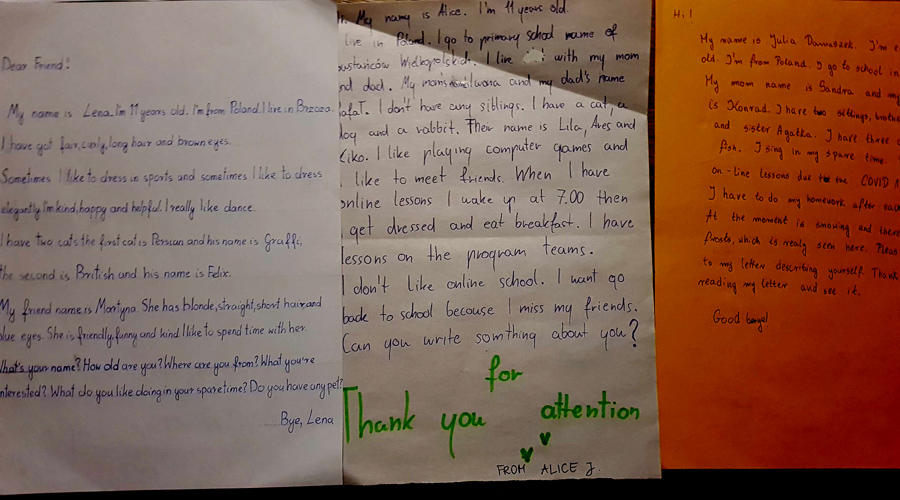 Dear Friend!
My name is Lena. I'm 11 years old. I'm from Poland. I live in Brzoza.
I have got fair, curly, long hair and brown eyes.
Sometimes I like to dress in sports and sometimes I like to dress
elegantly. I'm kind, happy and helpful. I really like dance.
I have two cats the first cat is Persian and his name is Graffi,
the second is British and his name is Felix.
My friend name is Martyna. She has blonde, straight, short hair and
blue eyes. She is friendly, funny and kind. I like to spend time with her.
What's your name? How old are you? Where are you from? What you're
interested? What do you like doing in your spare time? Do you have any pet?
Bye, Lena
My namy is Alice. I'm 11 years old.
live in Poland. I go to primary school name of
Wielkopolskich. I live with my mom
and dad. My mom's name is Iwona and my dad's name
I don't have any siblings. I have a cat, a
dog and a rabbit. Their name is Lila, Ares and
Kiko. I like playing computer games and
I like to meet friends. When I have
online lessons I wake up at 7.00 then
I get dressed and eat breakfast. I have
lessons on the program teams.
I don't like online school. I want go
back to school becouse I miss my friends.
Can you write somthing about you?
for
Thank you attention
FROM ALICE J.
Hi!
My name is Julia I'm
old. I'm from Poland. I go to school in
My mom name is Sandra and my
is Konrad. I have two siblings, brother
and sister Agatka. I have three
fish. I sing in my spare time.
on-line lessons due to the COVID
I have to do my homework after
At the moment is snowing and there
frosts, which is realy seen here. Please
to my letter describing yourself. Thank
reading my letter and see it.
Good